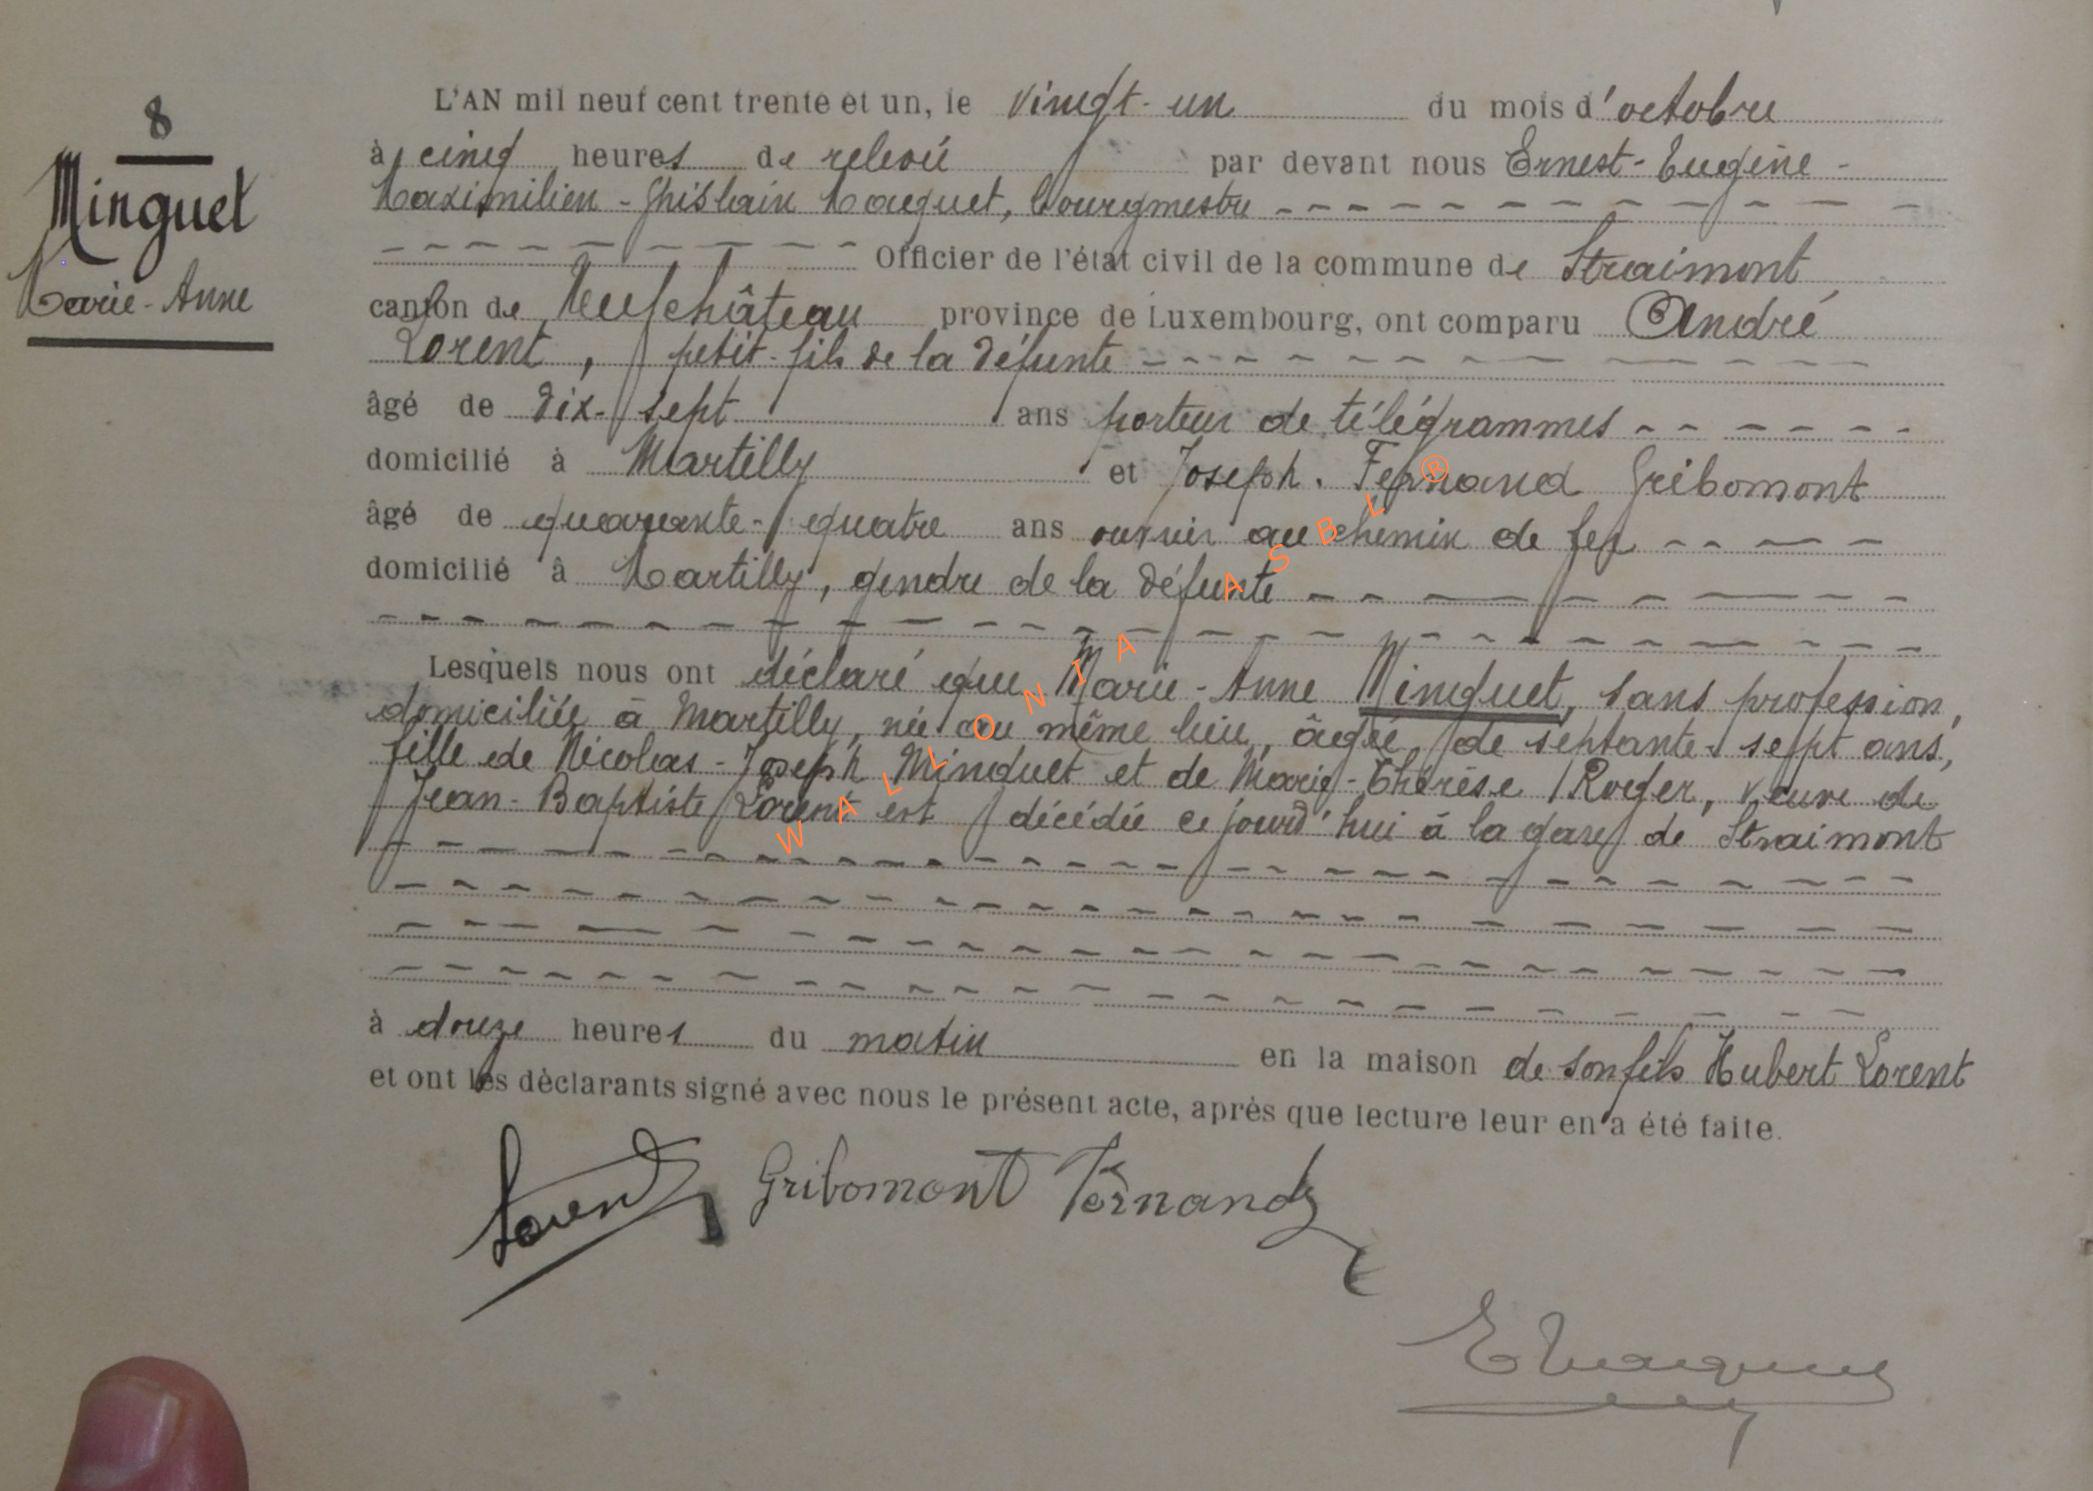 8
Minguet
Marie-Anne
L'AN mil neuf cent trente et un, le vingt-un du mois d'octobre
à cinq heures de relevée par devant nous Ernest-Eugène-
Maximilien-Ghislain Maquet, bourgmestre
Officier de l'état civil de la commune de Straimont
canton de Neufchâteau province de Luxembourg, ont comparu André
Lorent, petit-fils de la défunte
âgé de dix-sept ans porteur de télégrammes
domicilié à Martilly et Joseph-Fernand Gribomont
âgé de quarante-quatre ans ouvrier au chemin de fer
domicilié à Martilly, gendre de la défunte
Lesquels nous ont déclaré que Marie-Anne Minguet, sans profession,
domiciliée à Martilly, née au même lieu, âgée de septante-sept ans,
fille de Nicolas-Joseph Minguet et de Marie-Thérèse Roger, veuve de
Jean-Baptiste Lorent est décédée ce jourd'hui à la gare de Straimont
à douze heures du matin en la maison de son fils Hubert Lorent
et ont les déclarants signé avec nous le présent acte, après que lecture leur en a été faite.
Lorent Gribomont Fernand
E Maquet
WALLONIA ASBL®